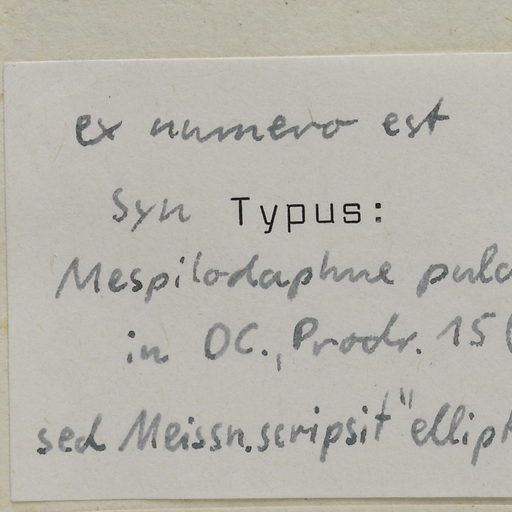 ex numero est
Syn Typus:
Mespilodaphne pulc
in DC., Prodr. 15 (
sed Meissn. scripsit "ellipt